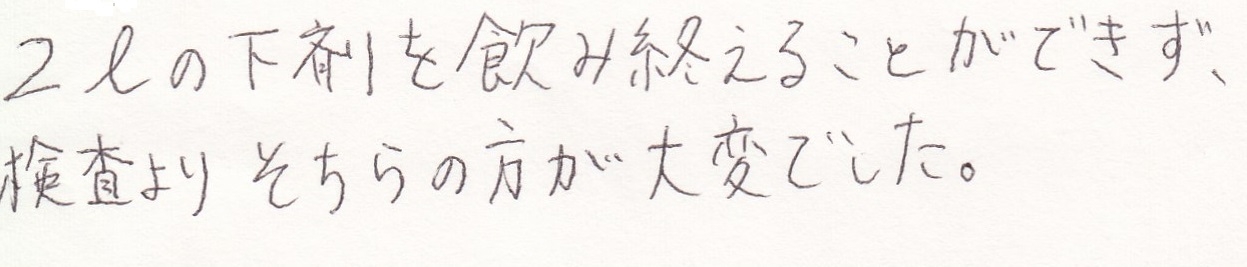 2ℓの下剤を飲み終えることができず、
検査よりそちらの方が大変でした。